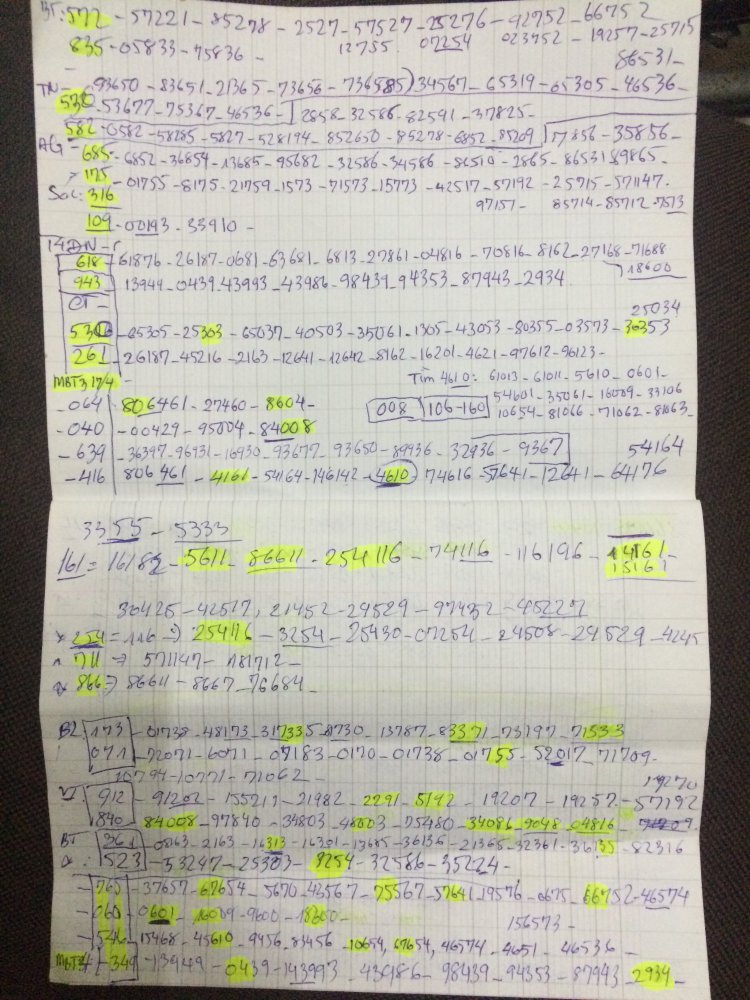 BT: 572 - 57221 - 85278 - 2527 - 57527 - 25276 - 92752 - 66752
835 - 05833 - 75836 - 12755 07254 023752 - 19257 - 25715
86531 -
TN - 93650 - 83651 - 21365 - 73656 - 34567 - 65319 - 05305 - 46536 -
530 53677 - 75367 - 46536 - 2858 - 32586 - 82591 - 37825 -
582 - 0582 - 58285 - 5827 - 528194 - 852650 - 85278 - 6852 - 85209 17856 - 35856 -
AG - 685 - 6852 - 36854 - 13685 - 95682 - 32586 - 34586 - 86510 - 2865 - 86531 89865 -
175 - 01755 - 8175 - 21759 - 1573 - 71573 - 15773 - 42517 - 57192 - 25715 - 571147 -
Soc: 316 97157 - 85714 - 85712 - 7513
109 - 00193 - 33910 -
14 ĐN -
618 - 61876 - 26187 - 0681 - 63681 - 6813 - 27861 - 04816 - 70816 - 8162 - 27168 - 71688
943 13944 - 0439 - 43993 - 43986 - 98439 - 94353 - 87943 - 2934 18600
CT - 25034
530 - 65305 - 25303 - 65037 - 40503 - 35061 - 1305 - 43053 - 80355 - 03573 - 30353
261 - 26187 - 45216 - 2163 - 12641 - 12642 - 8162 - 16201 - 4621 - 97612 - 96123 -
MBT3 17/4 - Tìm 4610: 61013 - 61011 - 5610 - 0601 -
- 064 806461 - 27460 - 8604 - 008 106-160 54601 - 35061 - 16009 - 33106
- 040 - 00429 - 95004 - 84008 10654 - 81066 - 71062 - 81063 -
- 639 - 36397 - 96931 - 16930 - 93677 - 93650 - 89936 - 32936 - 9367 54164
- 416 806461 - 4161 - 54164 - 146142 - 4610 - 74616 - 57641 - 12641 - 64176
3355 - 5333
161 = 16182 - 5611 - 86611 - 254116 - 74116 - 116196 - 14161 -
15161
30425 - 42517, 21452 - 29529 - 97452 - 45227
x 254 = 116 ⇒ 254116 - 3254 - 25430 - 07254 - 24508 - 29529 - 4245
711 ⇒ 571147 - 181712 -
866 ⇒ 86611 - 8667 - 76684 -
BL 173 - 01738 - 48173 - 317335 - 8730 - 13787 - 83371 - 73197 - 71533
071 - 72071 - 6071 - 07183 - 0170 - 01738 - 01755 - 52017 - 71709 -
10797 - 10771 - 71062 - 19270
VT: 912 - 91202 - 155211 - 21982 - 2291 - 5192 - 19207 - 19257 - 57192
840 84008 - 97840 - 34803 - 48003 - 75480 - 34086 - 9048 - 04816 -
BT 361 - 0063 - 2163 - 16313 - 16301 - 13685 - 36136 - 21365 - 32361 - 36135 - 82316
523 - 53247 - 25303 - 8254 - 32586 - 35224 -
- 765 - 37657 - 67654 - 5670 - 43567 - 75567 - 57641 - 19576 - 0675 - 66752 - 46574
- 060 - 0601 - 16009 - 9600 - 18600 - 156573 -
- 546 15468 - 45610 - 9456 - 83456 - 10654, 67654, 46574 - 4651 - 46536 -
- 349 - 13949 - 0439 - 143993 - 43986 - 98439 - 94353 - 87943 - 2934 -